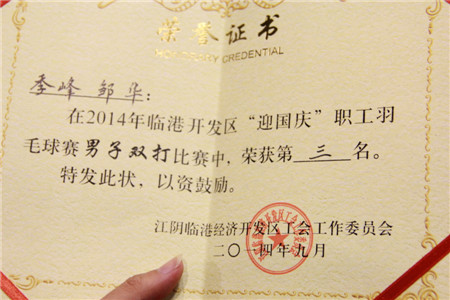 荣誉证书
HONORARY CREDENTIAL
季峰 邹华：
在2014年临港开发区“迎国庆”职工羽
毛球赛男子双打比赛中，荣获第三名。
特发此状，以资鼓励。
江阴临港经济开发区工会工作委员会
二〇一四年九月